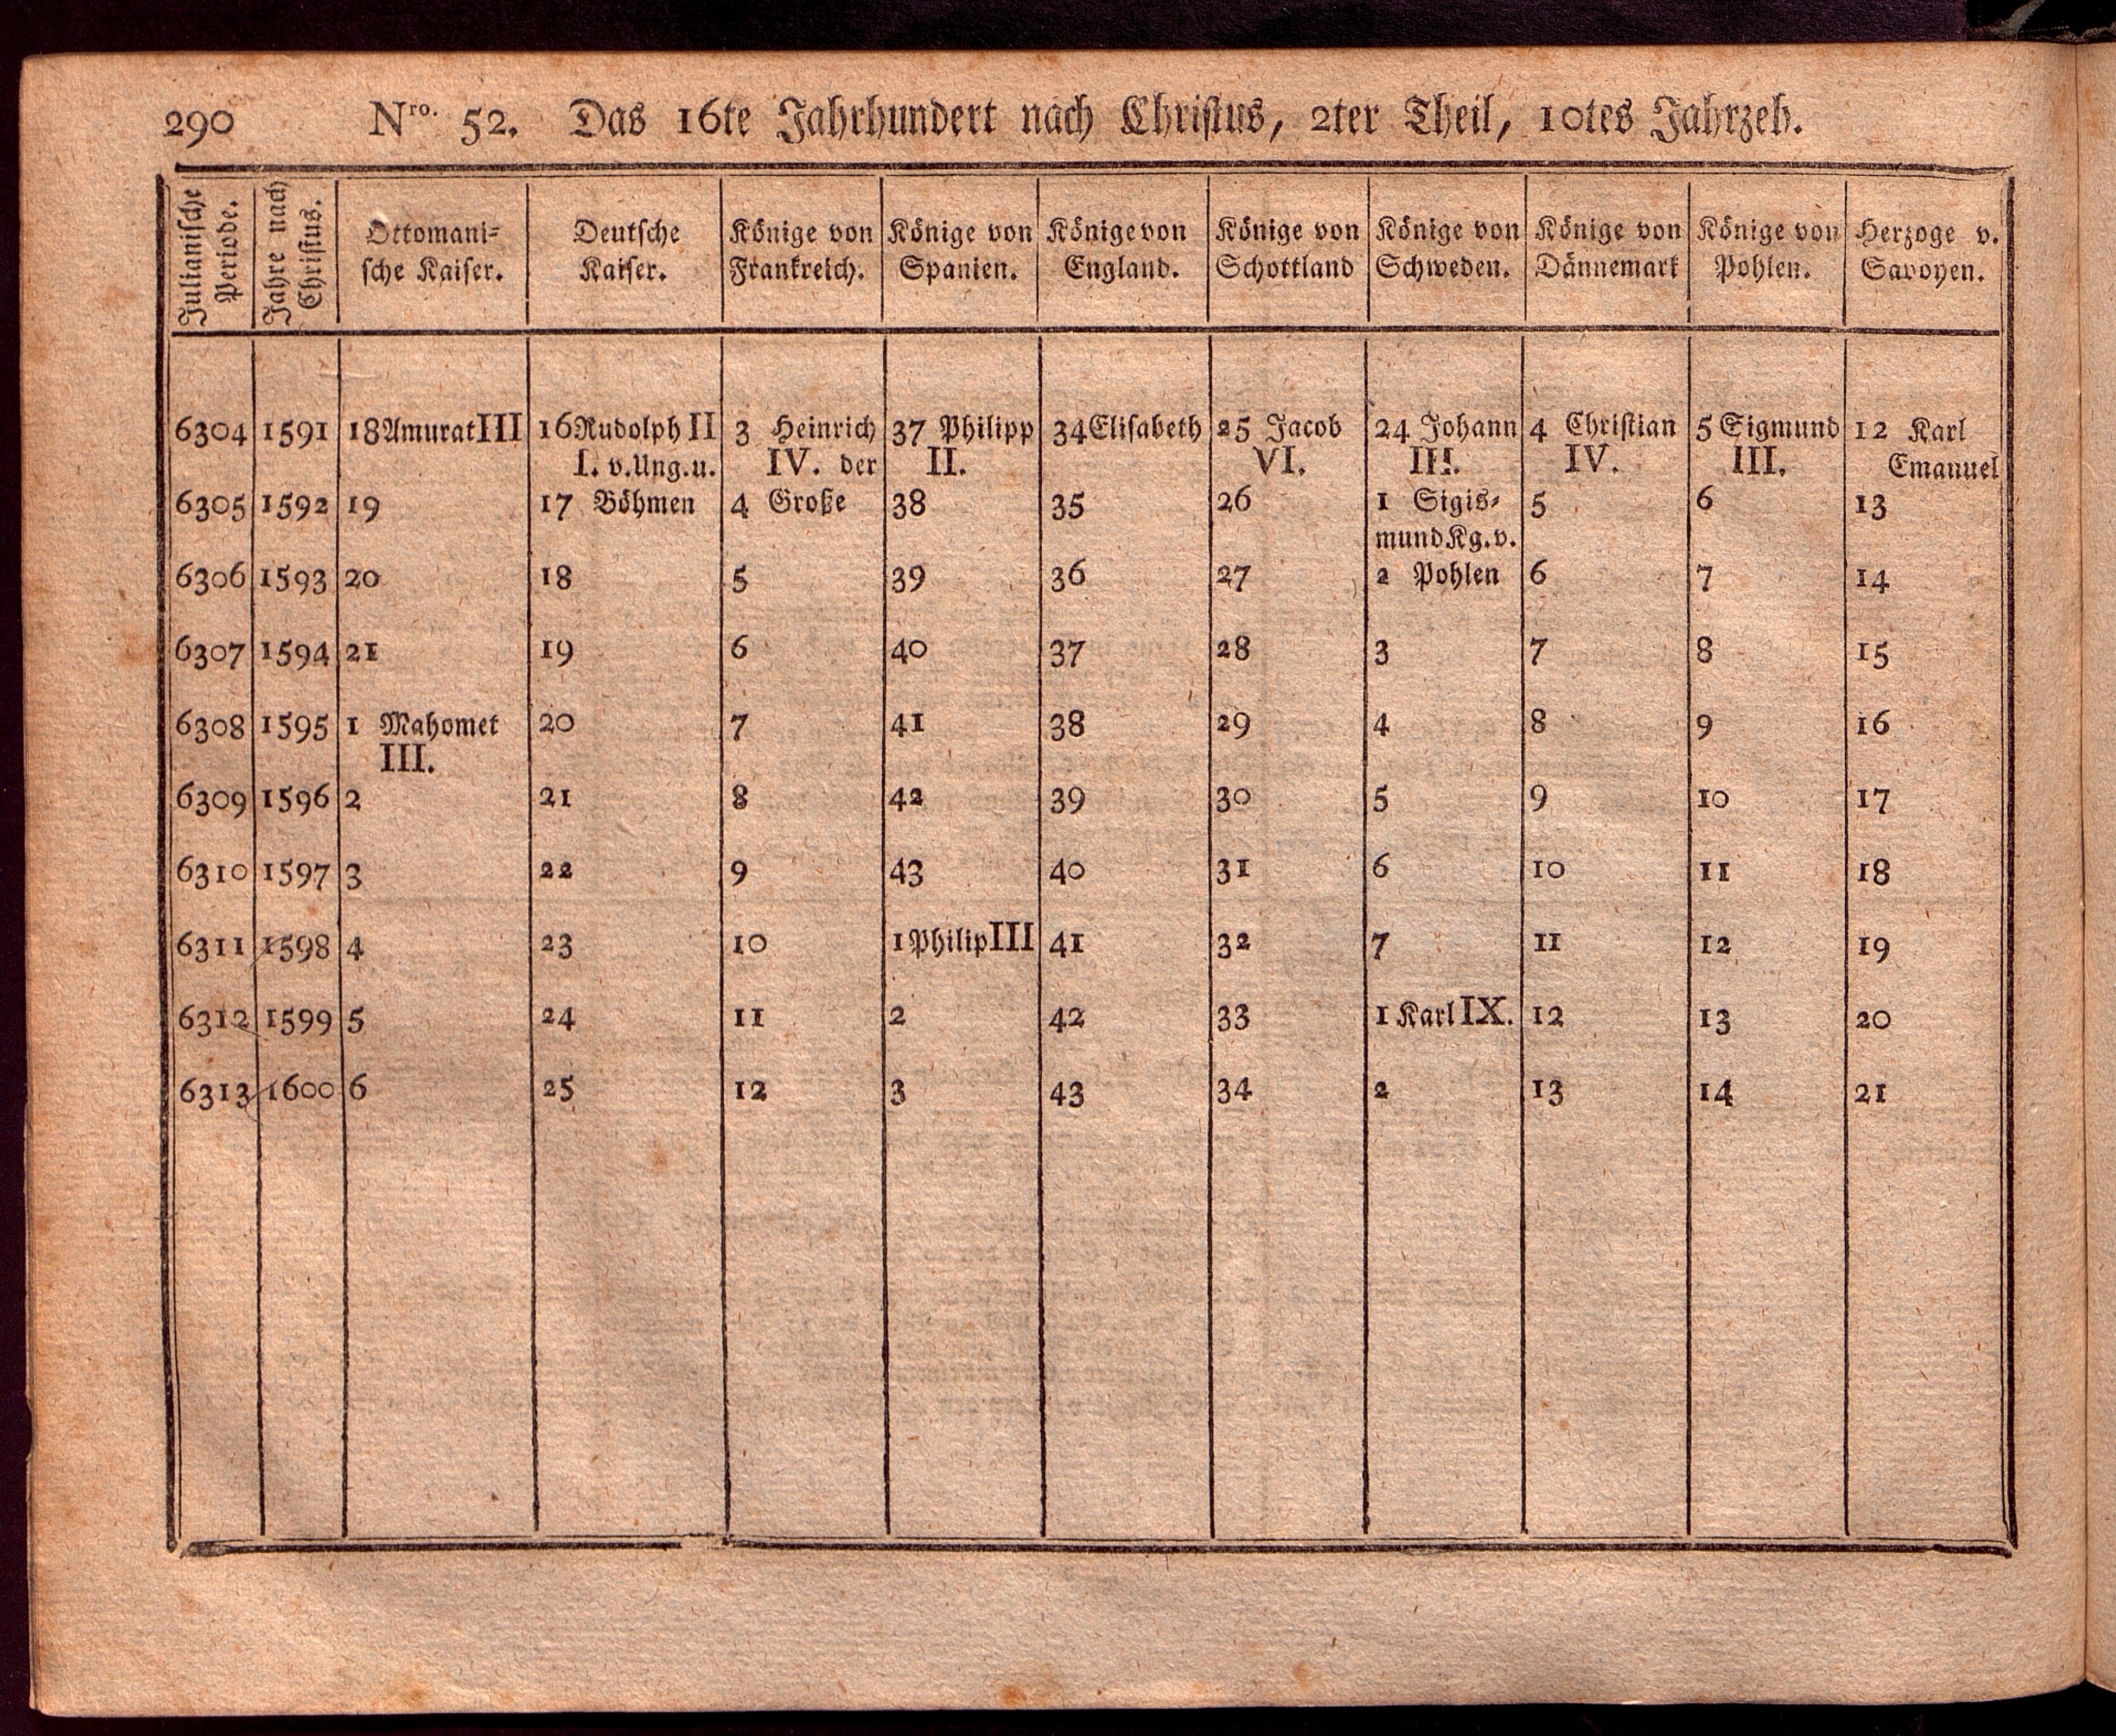 290 Nro. 52. Das 16te Jahrhundert nach Christus, 2ter Theil, 10tes Jahrzeh.
Julianische Periode. Jahre nach Christus. Ottomani= sche Kaiser. Deutsche Kaiser. Könige von Frankreich. Könige von Spanien. Könige von England. Könige von Schottland Könige von Schweden. Könige von Dännemark Könige von Pohlen. Herzoge v. Savoyen.
6304 1591 18 Amurat III 16 Rudolph II 3 Heinrich 37 Philipp 34 Elisabeth 25 Jacob 24 Johann 4 Christian 5 Sigmund 12 Karl
I. v. Ung. u. IV. der II. VI. III. IV. III. Emanuel
6305 1592 19 17 Böhmen 4 Große 38 35 26 1 Sigis= 5 6 13
mund Kg. v.
6306 1593 20 18 5 39 36 27 2 Pohlen 6 7 14
6307 1594 21 19 6 40 37 28 3 7 8 15
6308 1595 1 Mahomet 20 7 41 38 29 4 8 9 16
III.
6309 1596 2 21 8 42 39 30 5 9 10 17
6310 1597 3 22 9 43 40 31 6 10 11 18
6311 1598 4 23 10 1 Philip III 41 32 7 11 12 19
6312 1599 5 24 11 2 42 33 1 Karl IX. 12 13 20
6313 1600 6 25 12 3 43 34 2 13 14 21